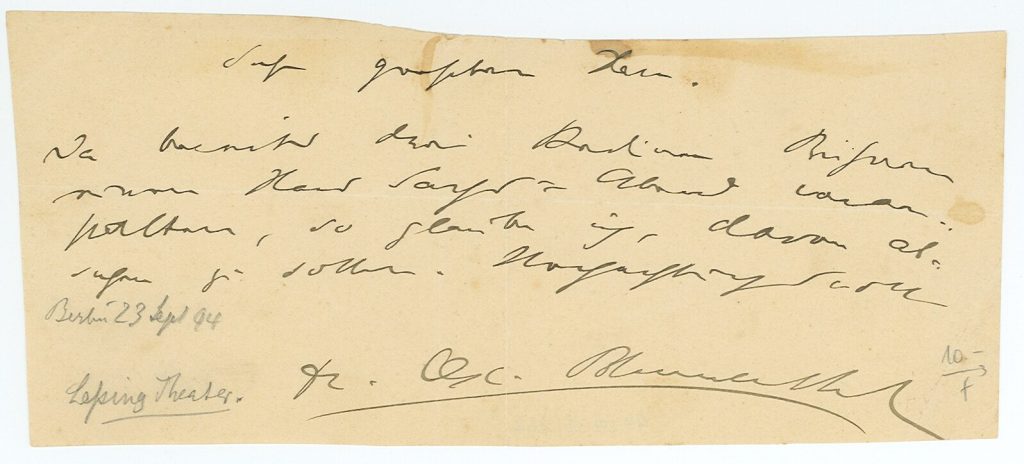 Sehr geehrter Herr.
Da bereits drei Berliner Bühnen
einen Hans Sachs = Abend veran=
stalten, so glaube ich, davon ab=
sehen zu sollen. Hochachtungsvoll
Berlin 23 Sept 94
Dr. Osc. Blumenthal
Lessing Theater.
10-